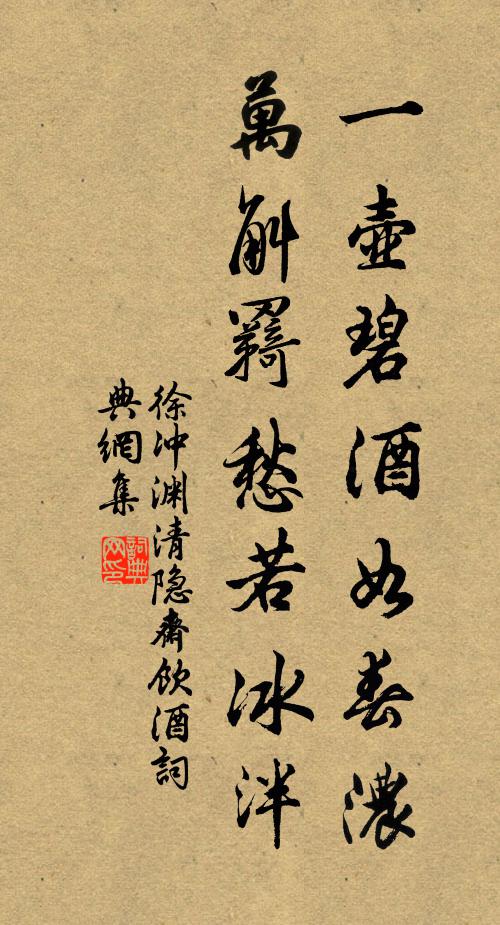 一壺碧酒如春濃
萬斛羇愁若冰泮
徐沖渊清隐齋飲酒詞
典網集
詞典网印